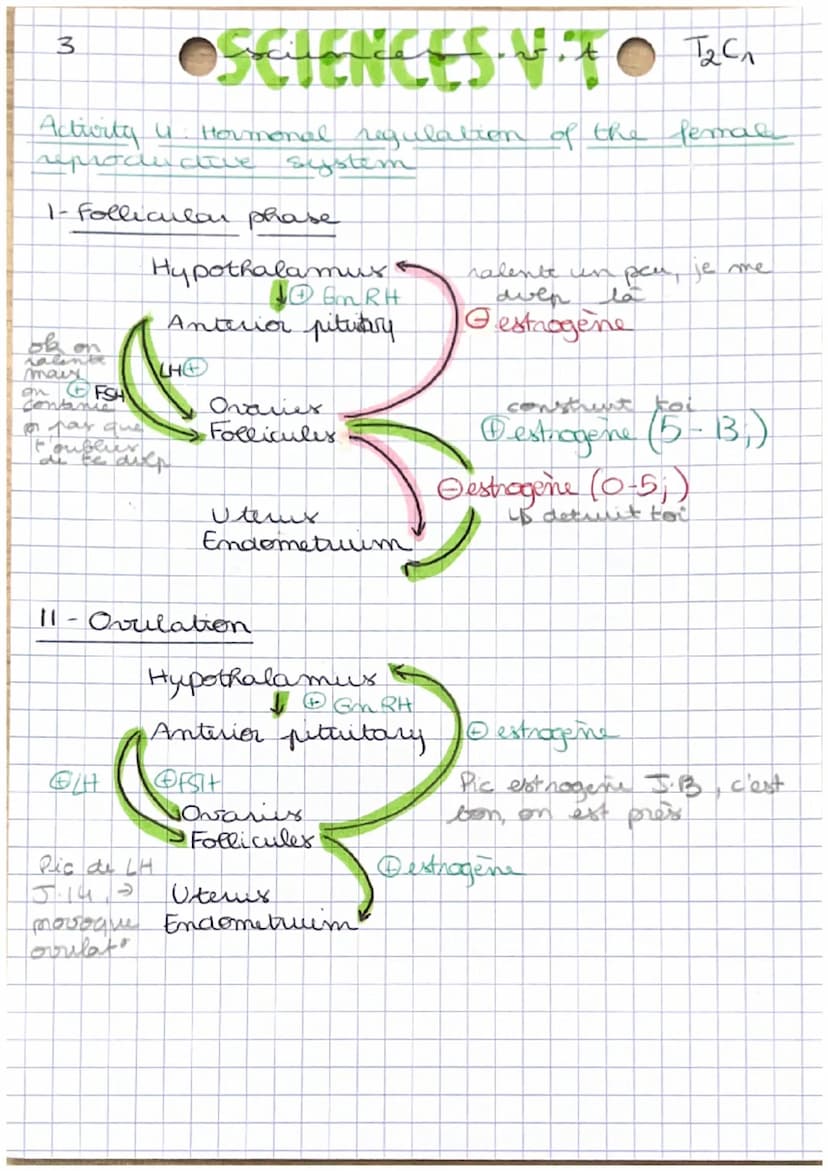 3
SCIENCES.V.T
sciences.v.t
T2C1
Activity 4: Hormonal regulation of the female
reproductive system
I- Follicular phase
Hypothalamus
ralente un peu, je me
dvlp là
⊕ GnRH
⊖ estrogène
Anterior pitutary
ok on
ralente
mais
on
continue
LH ⊕
⊕ FSH
Ovaries
Follicules
pas que
t'oublies
de te dvlp
construit toi
⊕ estrogène (5-13j)
⊖ estrogène (0-5j)
↳ detruit toi
Uterus
Endometruim
II- Ovulation
Hypothalamus
⊕ GnRH
Anterior pituitary
⊕ estrogène
⊕ LH
⊕ FSH
Pic estrogène J.13, c'est
bon, on est près
Ovaries
Follicules
⊕ estrogène
Pic de LH
J.14, →
provoque
ovulat°
Uterus
Endometruim